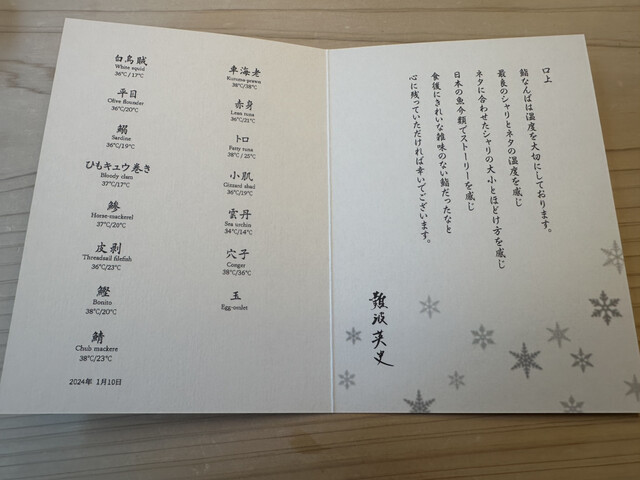 白烏賊
White squid
36℃/17℃
平目
Olive flounder
36℃/20℃
鰯
Sardine
36℃/19℃
ひもキュウ巻き
Bloody clam
37℃/17℃
鯵
Horse-mackerel
37℃/20℃
皮剥
Threadsail filefish
36℃/23℃
鰹
Bonito
38℃/20℃
鯖
Chub mackere
38℃/23℃
2024年 1月10日
車海老
Kuruma-prawn
38℃/38℃
赤身
Lean tuna
36℃/21℃
トロ
Fatty tuna
38℃/25℃
小肌
Gizzard shad
36℃/19℃
雲丹
Sea urchin
34℃/14℃
穴子
Conger
38℃/36℃
玉
Egg-omlet
口上
鮨なんばは温度を大切にしております。
最良のシャリとネタの温度を感じ
ネタに合わせたシャリの大小とほどけ方を感じ
日本の魚介類でストーリーを感じ
食後にきれいな雑味のない鮨だったなと
心に残っていただければ幸いでございます。
難波英史